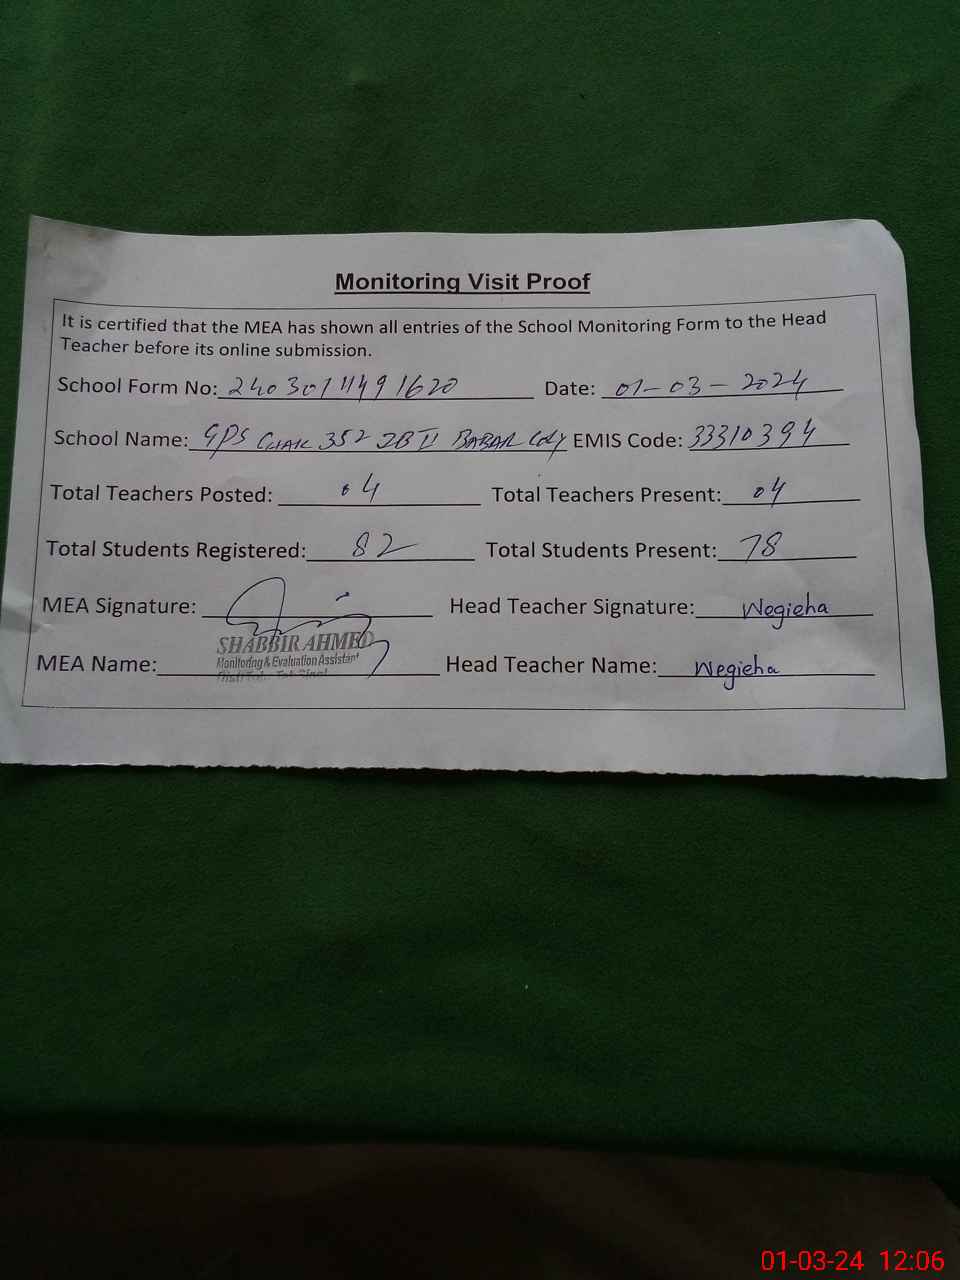 Monitoring Visit Proof
It is certified that the MEA has shown all entries of the School Monitoring Form to the Head
Teacher before its online submission.
School Form No: 2403011491620 Date: 01-03-2024
School Name: GPS CHAK 352 JB II BABAR Coly EMIS Code: 33310394
Total Teachers Posted: 04 Total Teachers Present: 04
Total Students Registered: 82 Total Students Present: 78
MEA Signature: Head Teacher Signature: Wegieha
SHABBIR AHMED
MEA Name: Monitoring & Evaluation Assistant Head Teacher Name: Wegieha
01-03-24 12:06